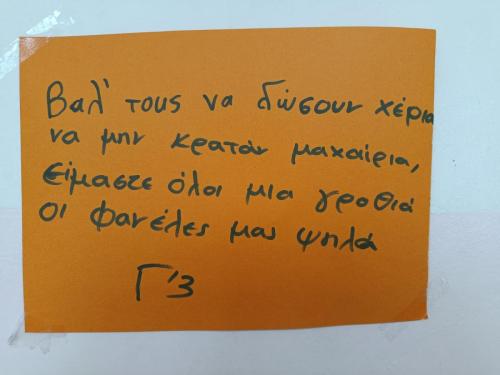 Βαλ' τους να δώσουν χέρια
να μην κρατάν μαχαίρια,
είμαστε όλοι μια γροθιά
οι φανέλες μας ψηλά
Γ'3